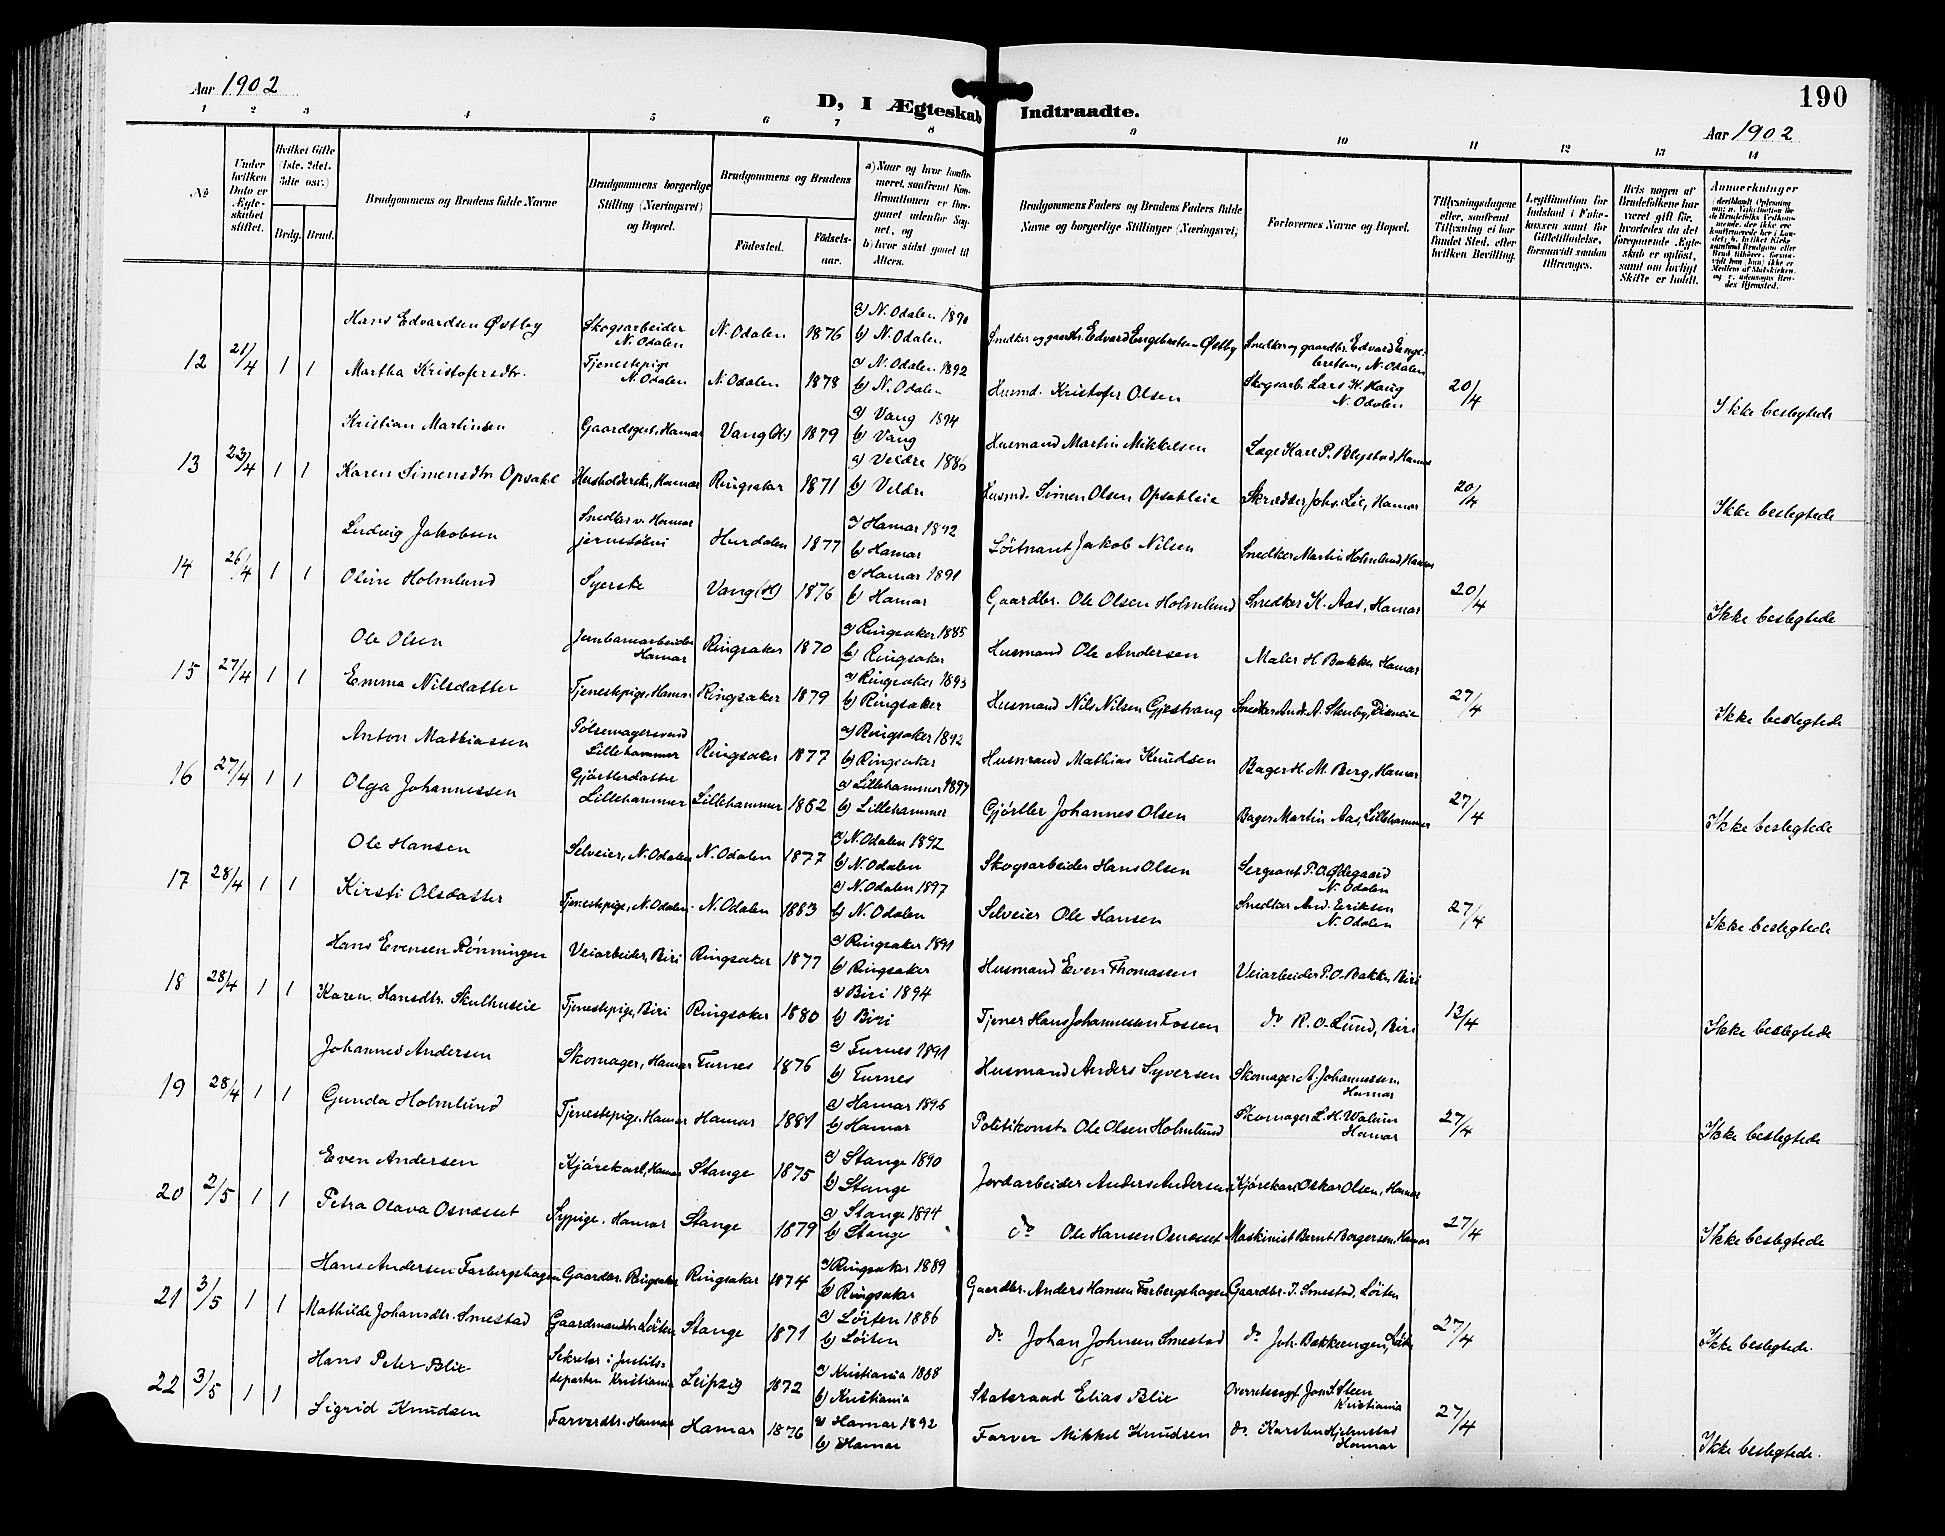 Aar 1902
D, I Ægteskab Indtraadte.
190
Aar 1902
1 2 3 4 5 6 7 8 9 10 11 12 13 14
No
Under hvilken Dato er Ægteskabet stiftet.
Hvilket Gifte (1ste, 2det, 3die osv.)
Brdg. Brud.
Brudgommens og Brudens fulde Navne
Brudgommens borgerlige Stilling (Næringsvei) og Bopæl.
Brudgommens og Brudens
Fødested. Fødselsaar.
a) Naar og hvor konfirmeret, saafremt Konfirmationen er foregaaet udenfor Sognet, og
b) hvor sidst gaaet til Alters.
Brudgommens Faders og Brudens Faders fulde Navne og borgerlige Stillinger (Næringsvei)
Forlovernes Navne og Bopæl.
Tillysningsdagene eller, saafremt Tillysning ei har fundet Sted, efter hvilken Bevilling.
Legitimation for Indskud i Enkekassen samt for Giftetilladelse, forsaavidt saadan tiltrænges.
Hvis nogen af Brudefolkene har været gift før, hvorledes da det foregaaende Ægteskab er opløst, samt om lovligt Skifte er holdt.
Anmerkninger
12 21/4 1 1
Hans Edvardsen Østby Skogsarbeider N. Odalen N. Odalen 1876 a) N. Odalen 1890 b) N. Odalen Snedker og gaardbr. Edvard Engebretsen Østby Snedker og gaardbr. Edvard Engebretsen, N. Odalen
Martha Kristofersdtr. Tjenestepige N. Odalen N. Odalen 1878 a) N. Odalen 1892 b) N. Odalen Husmd. Kristofer Olsen Skogsarb. Lars H. Haug N. Odalen 20/4 Ikke beslegtede
13 23/4 1 1
Kristian Martinsen Gaardsgut, Hamar Vang (H) 1879 a) Vang 1894 b) Vang Husmand Martin Mikkelsen Læge Karl P. Blystad, Hamar
Karen Simensdtr Opsahl Husholderske, Hamar Ringsaker 1871 a) Veldre 1886 b) Veldre Husmd. Simen Olsen Opsahleie Skrædder Johs. Lie, Hamar 20/4 Ikke beslegtede
14 26/4 1 1
Ludvig Jakobsen Snedker v. Hamar jernstøberi Hurdalen 1877 a) Hamar 1892 b) Hamar Løitnant Jakob Nilsen Snedker Martin Holmlund, Hamar
Oline Holmlund Syerske Vang (H) 1876 a) Hamar 1891 b) Hamar Gaardbr. Ole Olsen Holmlund Snedker K. Aas, Hamar 20/4 Ikke beslegtede
15 27/4 1 1
Ole Olsen Jernbanearbeider Hamar Ringsaker 1870 a) Ringsaker 1885 b) Ringsaker Husmand Ole Andersen Maler H. Bakke, Hamar
Emma Nilsdatter Tjenestepige, Hamar Ringsaker 1879 a) Ringsaker 1895 b) Ringsaker Husmand Nils Nilsen Gjestvang Snedker Andr. A. Stenby, 27/4 Ikke beslegtede
16 27/4 1 1
Anton Mathiassen Pølsemagersvend Lillehammer Ringsaker 1877 a) Ringsaker 1892 b) Ringsaker Husmand Mathias Knudsen Bager H. M. Berg, Hamar
Olga Johannessen Gjørtlerdatter Lillehammer Lillehammer 1882 a) Lillehammer 1897 b) Lillehammer Gjørtler Johannes Olsen Bager Martin Aas, Lillehammer 27/4 Ikke beslegtede
17 28/4 1 1
Ole Hansen Selveier, N. Odalen N. Odalen 1877 a) N. Odalen 1892 b) N. Odalen Skogsarbeider Hans Olsen Sergeant P. O. Ødegaard N. Odalen
Kirsti Olsdatter Tjenestepige, N. Odalen N. Odalen 1883 a) N. Odalen 1897 b) N. Odalen Selveier Ole Hansen Snedker And. Eriksen N. Odalen 27/4 Ikke beslegtede
18 28/4 1 1
Hans Evensen Rønningen Veiarbeider, Biri Ringsaker 1877 a) Ringsaker 1891 b) Ringsaker Husmand Even Thomassen Veiarbeider P. O. Bakke, Biri
Karen Hansdtr. Skulhuseie Tjenestepige, Biri Ringsaker 1880 a) Biri 1894 b) Biri Tjener Hans Johannessen Fossen do R. O. Lund, Biri 13/4 Ikke beslegtede
19 28/4 1 1
Johannes Andersen Skomager, Hamar Furnes 1876 a) Furnes 1891 b) Furnes Husmand Anders Syversen Skomager A. Johannessen Hamar
Gunda Holmlund Tjenestepige, Hamar Hamar 1881 a) Hamar 1896 b) Hamar Politikonst. Ole Olsen Holmlund Skomager L. H. Walum Hamar 27/4 Ikke beslegtede
20 2/5 1 1
Even Andersen Kjørekarl, Hamar Stange 1875 a) Stange 1890 b) Stange Jordarbeider Anders Andersen Kjørekarl Oskar Olsen, Hamar
Petra Olava Osnæsset Sypige, Hamar Stange 1879 a) Stange 1894 b) Stange do Ole Hansen Osnæsset Maskinist Bernt Borgersen, Hamar 27/4 Ikke beslegtede
21 3/5 1 1
Hans Andersen Farbergshagen Gaardbr. Ringsaker Ringsaker 1874 a) Ringsaker 1889 b) Ringsaker Gaardbr. Anders Hansen Farbergshagen Gaardbr. I. Smestad, Løiten
Mathilde Johansdtr. Smestad Gaardmandsdtr. Løiten Stange 1871 a) Løiten 1886 b) Løiten do Johan Johnsen Smestad do Joh. Bakkeengen, Løiten 27/4 Ikke beslegtede.
22 3/5 1 1
Hans Peter Blix Sekretær i Justitsdeparten Kristiania Leipzig 1872 a) Kristiania 1888 b) Kristiania Statsraad Elias Blix Overretssagf. Jon S. Steen Kristiania
Sigrid Knudsen Farverdtr. Hamar Hamar 1876 a) Hamar 1892 b) Hamar Farver Mikkel Knudsen do Karsten Hjelmstad Hamar 27/4 Ikke beslegtede.